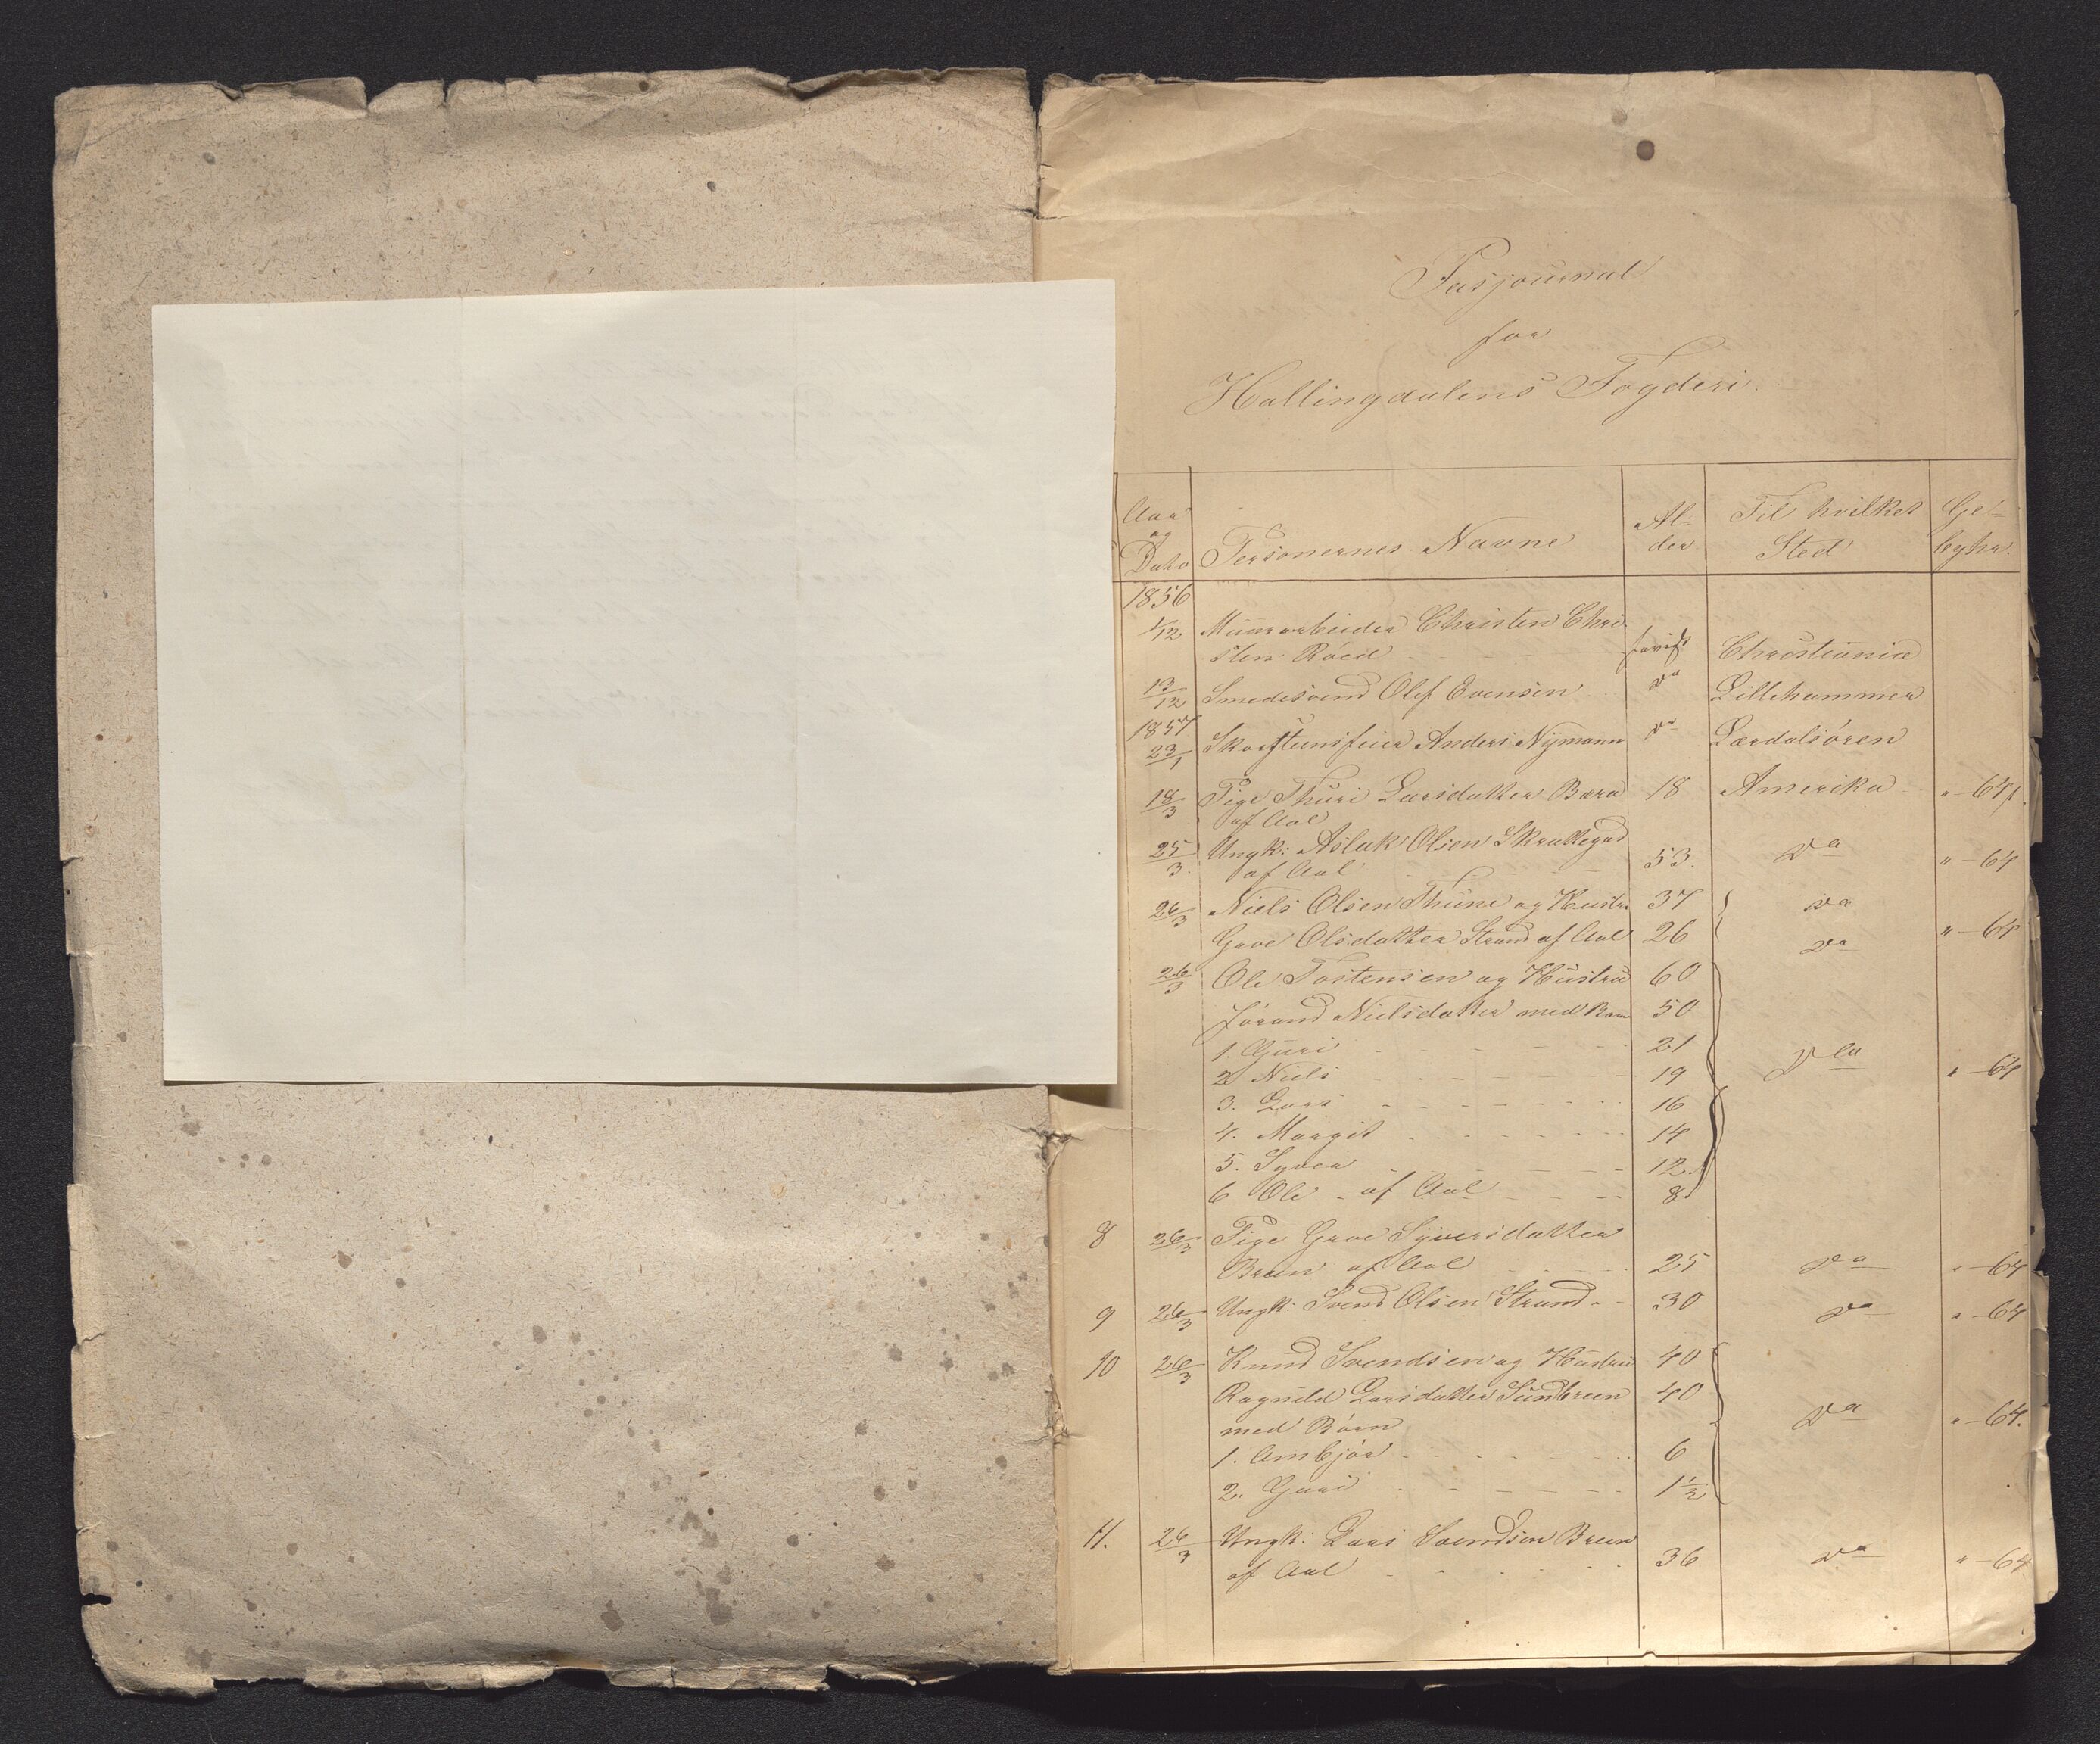 Pasjournal
for
Hallingdalens Fogderi
Aar og Dato Personernes Navne Alder Til hvilket Sted Gebyhr.
1856
1/12 Muurarbeider Christen Chri-
sten Röed Christiania
13/12 Smedesvend Olef Evensen da Lillehammer
1857
23/1 Skorsteensfeier Anders Nÿmann da Lærdalsören
18/3 Pige Thuri Larsdatter Bæra 18 Amerika " - 64
af Aal
25/3 Ungk: Aslak Olsen Skrattegad
af Aal 53. da " - 64
26/3 Niels Olsen Thune og Hustru 37 da
Groe Olsdatter Strand af Aal 26 da " - 64
26/3 Ole Tostensen og Hustru 60
Jörand Nielsdatter med Børn 50
1. Guri 21
2 Niels 19 da " - 64
3. Lars 16
4. Margit 14
5. Syver 12.
6 Ole - af Aal 8
8 26/3 Pige Groe Sÿversdatter
Breen af Aal 25 da " - 64
9 26/3 Ungk: Svend Olsen Strand - 30 da " - 64
10 26/3 Knud Svendsen og Hustru 40
Ragnild Larsdatter Sundreen 40
med Börn da " - 64.
1. Ambjör 6
2. Guri 1 1/2
11. 26/3 Ungk: Lars Svendsen Breen
af Aal 36 da " - 64